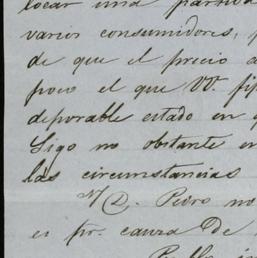 locar una partida
varios consumidores, p
de que el precio a
poco el que VV. fi
deporable estado en q
Sigo no obstante en
las circunstancias
D. Pedro no
es pr. causa de